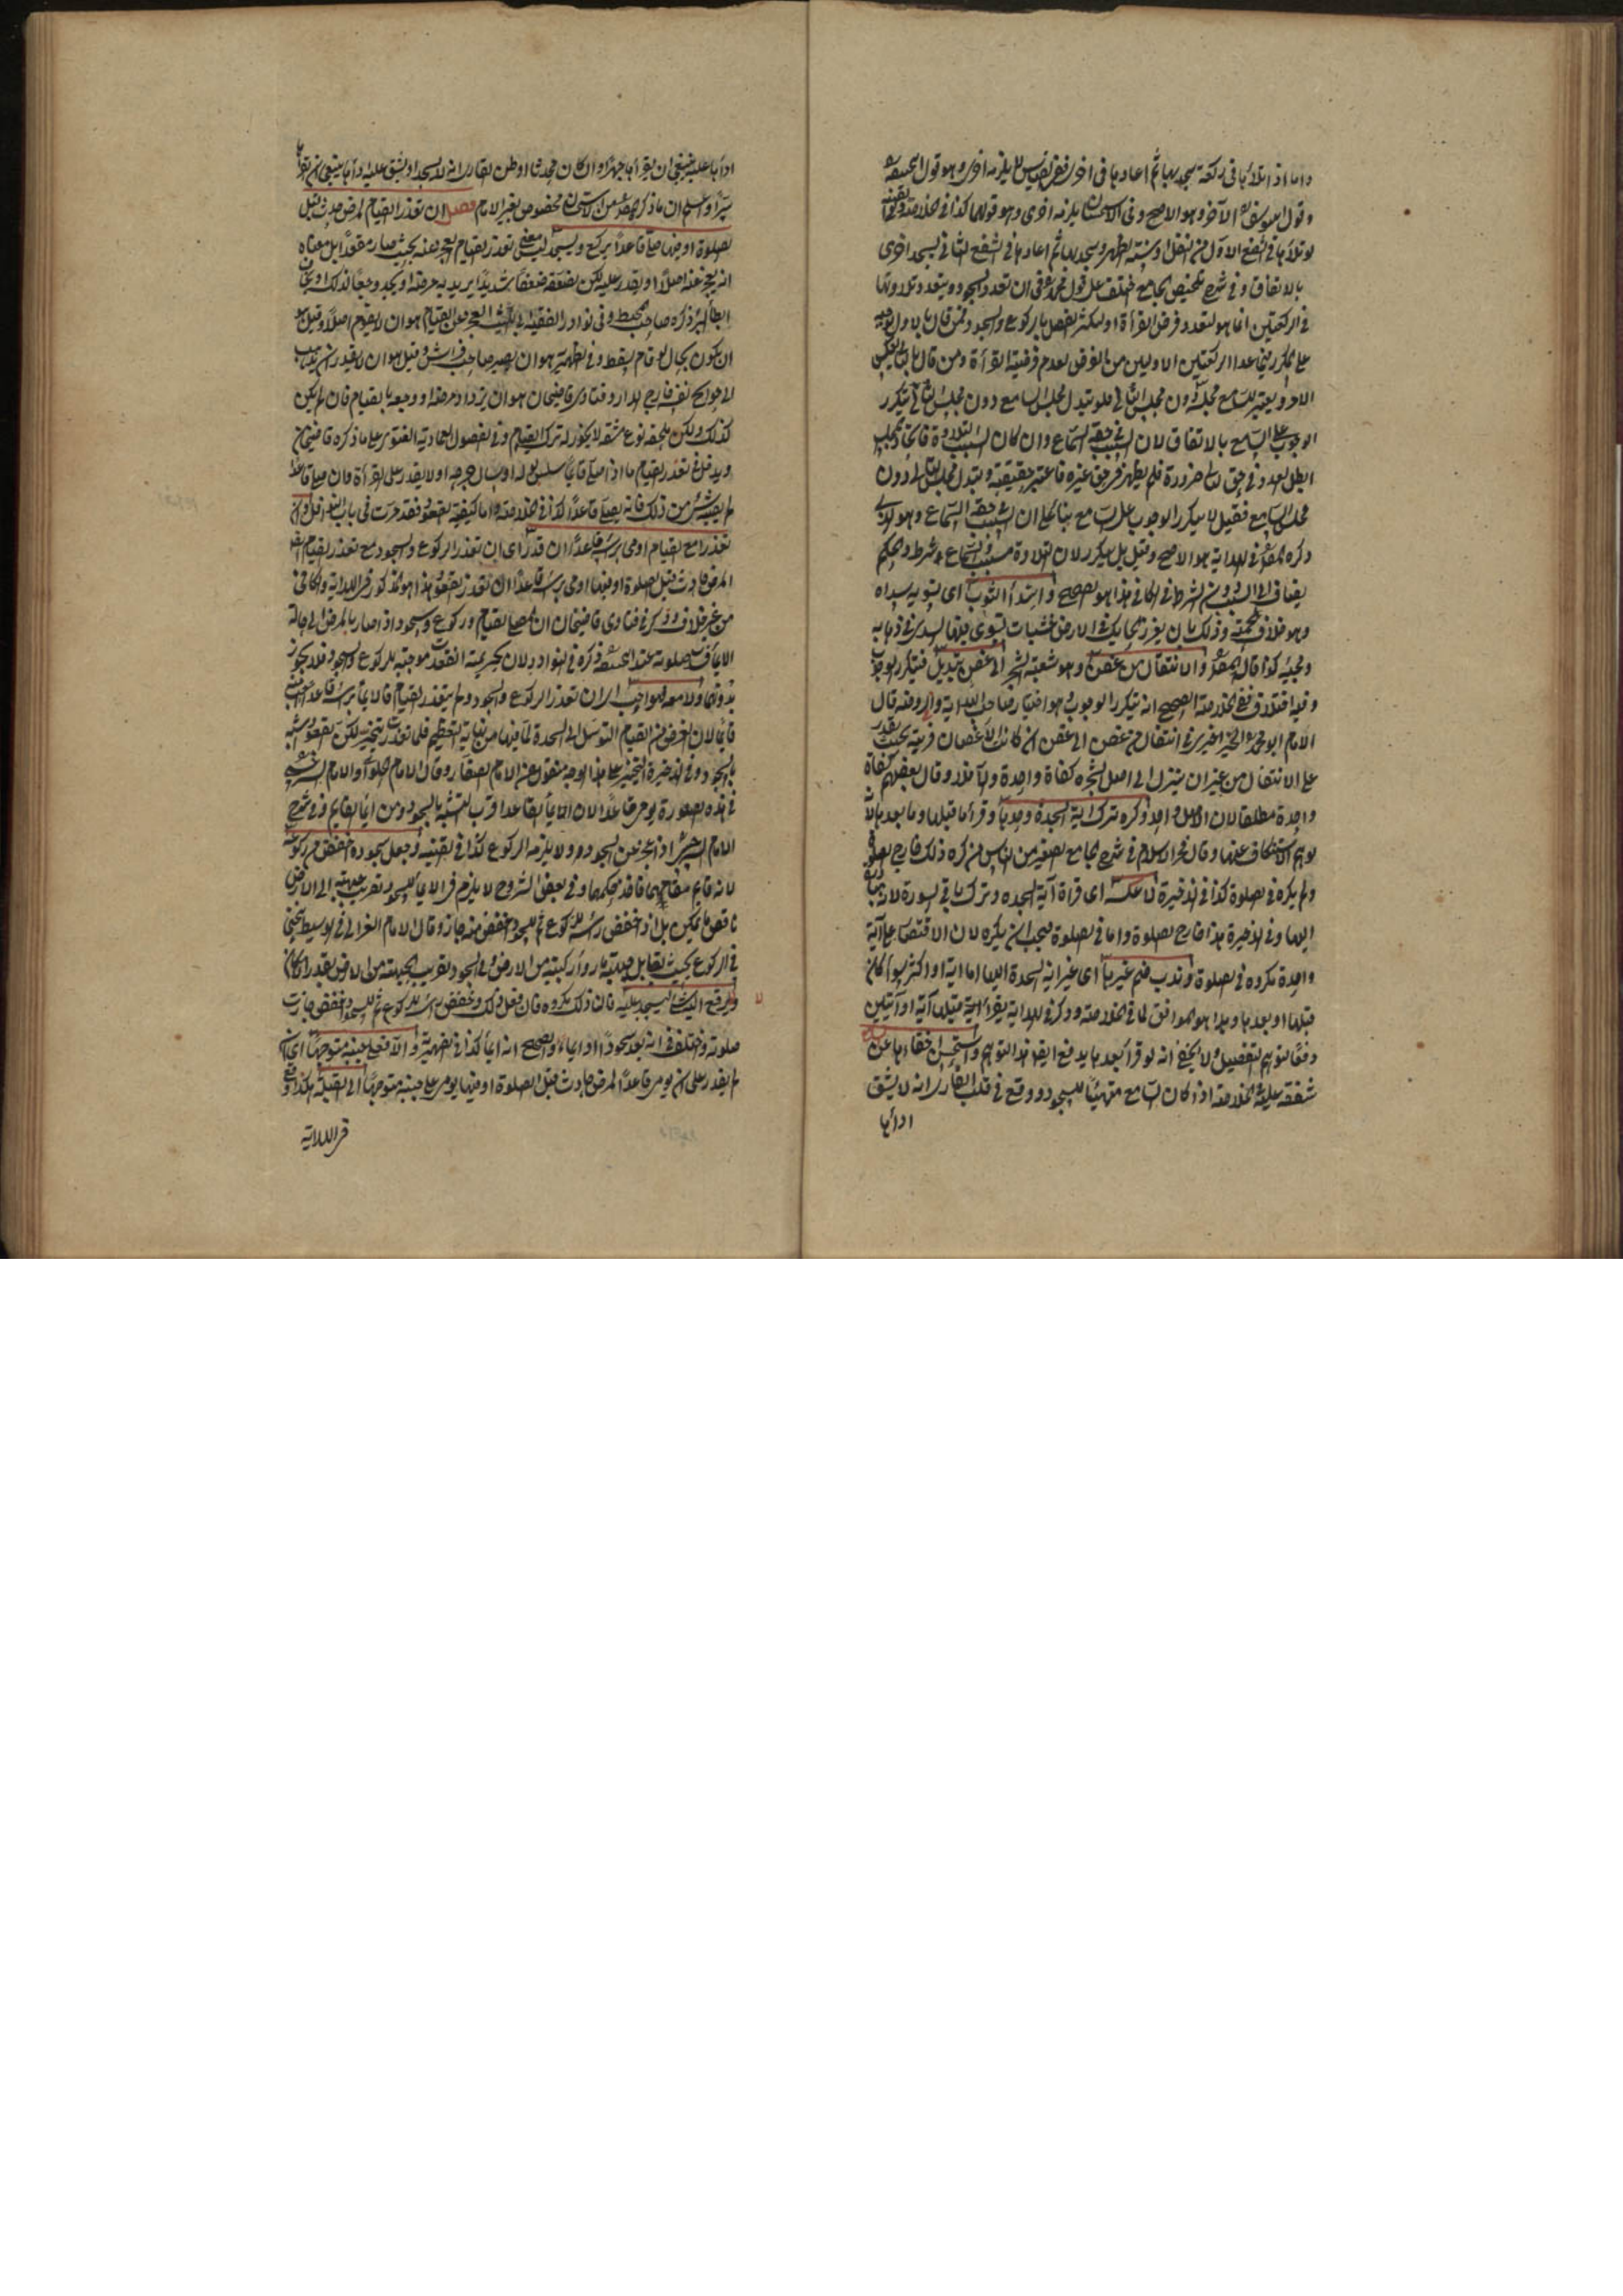 واما اذا تلاها فى ركعة سجد بها ثم اعادها فى اخرى ففى القياس لا يلزمه اخرى وهو قول
وقول ابى يوسف الآخر وهو الاصح وفى الاستحسان يلزمه اخرى وهو قولها كذا فى الخلاصة
لو تلاها فى الشفع الاول من النفل او سنة الظهر وسجد بها ثم اعادها فى الشفع الثانى يسجد اخرى
بالاتفاق وفى شرح تلخيص الجامع اختلف على قول محمد فى ان تعدد السجود وبتعدد تلاوتها
فى الركعتين انما هو لتعدد فرض القرأة او لكثرة الفصل بالركوع والسجود فمن قال بالاول
على تكرر فيما عدا الركعتين الاوليين من الفرض لعدم فرضية القرأة ومن قال
الامر ويعتبر للسامع مجلسه دون مجلس التالى فلو تبدل مجلس السامع دون مجلس التالى تكرر
الوجوب على السامع بالاتفاق لان السبب فى حقه السماع وان كان السبب التلاوة فاتحاد المجلس
ابطل العدد فى حق التالى ضرورة فلم يظهر فى حق غيره فاعتبر حقيقته وتبدل مجلس التالى دون
مجلس السامع فقيل لا يتكرر الوجوب على السامع بناء على ان السبب فى حقه السماع وهو الذى
ذكره المص فى الهداية هو الاصح وقيل بل يتكرر لان التلاوة سبب والسماع شرط والحكم
يضاف الى السبب دون الشرط فى الكافى هذا هو الصحيح واسداء الثوب اى تسويه سداه
وهو خلاف لحمته وذلك بان يغرز الحايك فى الارض خشبات ليسوى فيها السدى فى ذهابه
ومجيئه كذا قاله المص والانتقال من غصن وهو شعبة الشجر الى غصن تبديل فيتكرر الوجوب
وفيه اختلاف ففى الخلاصة الصحيح انه يتكرر الوجوب هو اختيار صاحب الهداية والروضة قال
الامام ابو محمد فى انتقال من غصن الى غصن ان كانت الاغصان قريبة بحيث يقدر
على الانتقال من غير ان ينزل الى اصل الشجرة كفاه واحدة والا فلا وقال بعضهم كفاه
واحدة مطلقا لان الاصل واحد وكره ترك آية السجدة وحدها وقرأ ما قبلها وما بعدها لانه
يوهم الاستنكاف عنها وقال فخر الاسلام فى شرح الجامع الصغير من الناس من كره ذلك خارج الصلوة
ولم يكره فى الصلوة كذا فى الذخيرة لا عكسه اى قراة آية السجدة وترك باقى السورة لانه
اليها وفى الذخيرة هذا خارج الصلوة واما فى الصلوة فيجب ان يكره لان الاقتصار على آية
واحدة مكروه فى الصلوة وندب ضم غيرها اى غير آية السجدة اليها اما آية او اكثر سواء كان
قبلها او بعدها وهذا هو الموافق لما فى الخلاصة وذكر فى الهداية يقرأ قبلها آية او آيتين
دفعا لتوهم التفضيل ولا يخفى انه لو قرأ بعدها يدفع ايضا هذا التوهم واستحسن اخفاءها عن
شفقة عليه فى الخلاصة اذا كان السامع متهيئا للسجود ووقع فى قلب القارى انه لا يشق
اداؤها
اداؤها عليه ينبغى ان يقرأها جهرا وان كان محدثا او ظن القارى انه لا يسجد او يشق عليه اداؤها ينبغى ان يقرأها
سرا واعلم ان ما ذكره المص من الاستحسان مخصوص بغير الامام فصل ان تعذر القيام لمرض حدث قبل
الصلوة او فيها صلى قاعدا يركع ويسجد ليس معنى تعذر القيام العجز عنه بحيث صار مقعدا بل معناه
انه يعجز عنه اصلا او يقدر عليه لكن يضعفه ضعفا شديدا يزيد به مرضه او يجد وجعا لذلك او يخاف
ابطاء البرء ذكره صاحب المحيط وفى نوادر الفقيه ابى الليث العجز عن القيام هو ان لا يقوم اصلا وقيل هو
ان يكون بحال لو قام يسقط وفى الظهيرية هو ان يصير صاحب فراش وقيل هو ان لا يقدر ان يذهب
الى حوائج نفسه خارج الدار وفتاوى قاضيخان هو ان يزداد مرضه او وجعه بالقيام فان لم يكن
كذلك ولكن يلحقه نوع مشقة لا يجوز له ترك القيام وفى الفصول العمادية الفتوى على ما ذكره قاضيخان
ويدخل فى تعذر القيام ما اذا صلى قائما سلس بوله او سال جرحه او لا يقدر على القرأة فان صلى قاعدا
لم يصبه شئ من ذلك فانه يصلى قاعدا كذا فى الخلاصة واما كيفية القعود فقد مرت فى باب النوافل وان
تعذرا مع القيام اومى برأسه قاعدا ان قدر اى ان تعذر الركوع والسجود مع تعذر القيام
المرض حادث قبل الصلوة او فيها اومى برأسه قاعدا ان قدر القعود هذا هو المذكور فى الهداية والكافى
من غير خلاف وذكر فى فتاوى قاضيخان ان المصلى بقيام وركوع وسجود اذا صار بالمرض الى حالة
الايماء فسد صلوته عند ابى حنيفة ذكره فى النوادر لان تحريمته انعقدت موجبة للركوع والسجود فلا يجوز
بدونهما ولا معه فهو احب اى ان تعذر الركوع والسجود ولم يتعذر القيام فالايماء برأسه قاعدا
قائما لان الفرض من القيام التوسل الى السجدة لما فيها من نهاية التعظيم فلما تعذرت يتخير لكن القعود اشبه
بالسجود وفى الذخيرة التخيير على هذا الوجه منقول عن الامام الصفار وقال الامام الحلوانى والامام السرخسى
فى هذه الصورة يومى قاعدا لان ايماء القاعد اقرب للتشبه بالسجود من ايماء القايم وفى شرح
الامام السرخسى اذا عجز عن السجود لا يلزمه الركوع كذا فى القنية وجعل سجوده اخفض من ركوعه
لانه قايم مقامهما فاخذ حكمهما وفى بعض الشروح لا يلزم فى الايماء للسجود تقريب جبهته الى الارض
باقصى ما يمكن بل اذا خفض رأسه للركوع ثم للسجود اخفض منه جاز وقال الامام الغزالى فى الوسيط ينحنى
فى الركوع بحيث يقابل جبهته ما وراء ركبته من الارض وفى السجود تقريب الجبهة من الارض بقدر الامكان
ولا يرفع اليه شئ ليسجد عليه فان ذلك مكروه فان فعل ذلك وخفض رأسه للركوع ثم للسجود اخفض جازت
صلوته واختلف فى انه يعد سجودا او ايماء والصحيح انه ايماء كذا فى الظهيرية والا فعلى جنبه متوجها اى ان
لم يقدر على ان يومى قاعدا لمرض حادث قبل الصلوة او فيها يومى على جنبه متوجها الى القبلة هكذا وقع
فى الهداية